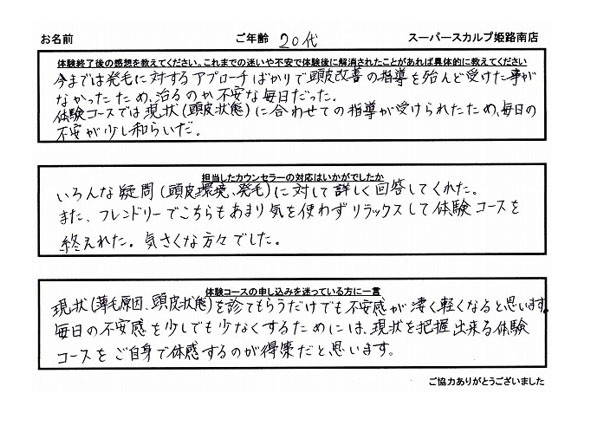 お名前 ご年齢 20代 スーパースカルプ姫路南店
体験終了後の感想を教えてください。これまでの迷いや不安で体験後に解消されたことがあれば具体的に教えてください
今までは発毛に対するアプローチばかりで頭皮改善の指導を殆んど受けた事が
なかったため、治るのか不安な毎日だった。
体験コースでは現状(頭皮状態)に合わせての指導が受けられたため、毎日の
不安が少し和らいだ。
担当したカウンセラーの対応はいかがでしたか
いろんな疑問(頭皮環境、発毛)に対して詳しく回答してくれた。
また、フレンドリーでこちらもあまり気を使わずリラックスして体験コースを
終えれた。気さくな方々でした。
体験コースの申し込みを迷っている方に一言
現状(薄毛原因、頭皮状態)を診てもらうだけでも不安感が凄く軽くなると思います。
毎日の不安感を少しでも少なくするためには、現状を把握出来る体験
コースをご自身で体感するのが得策だと思います。
ご協力ありがとうございました